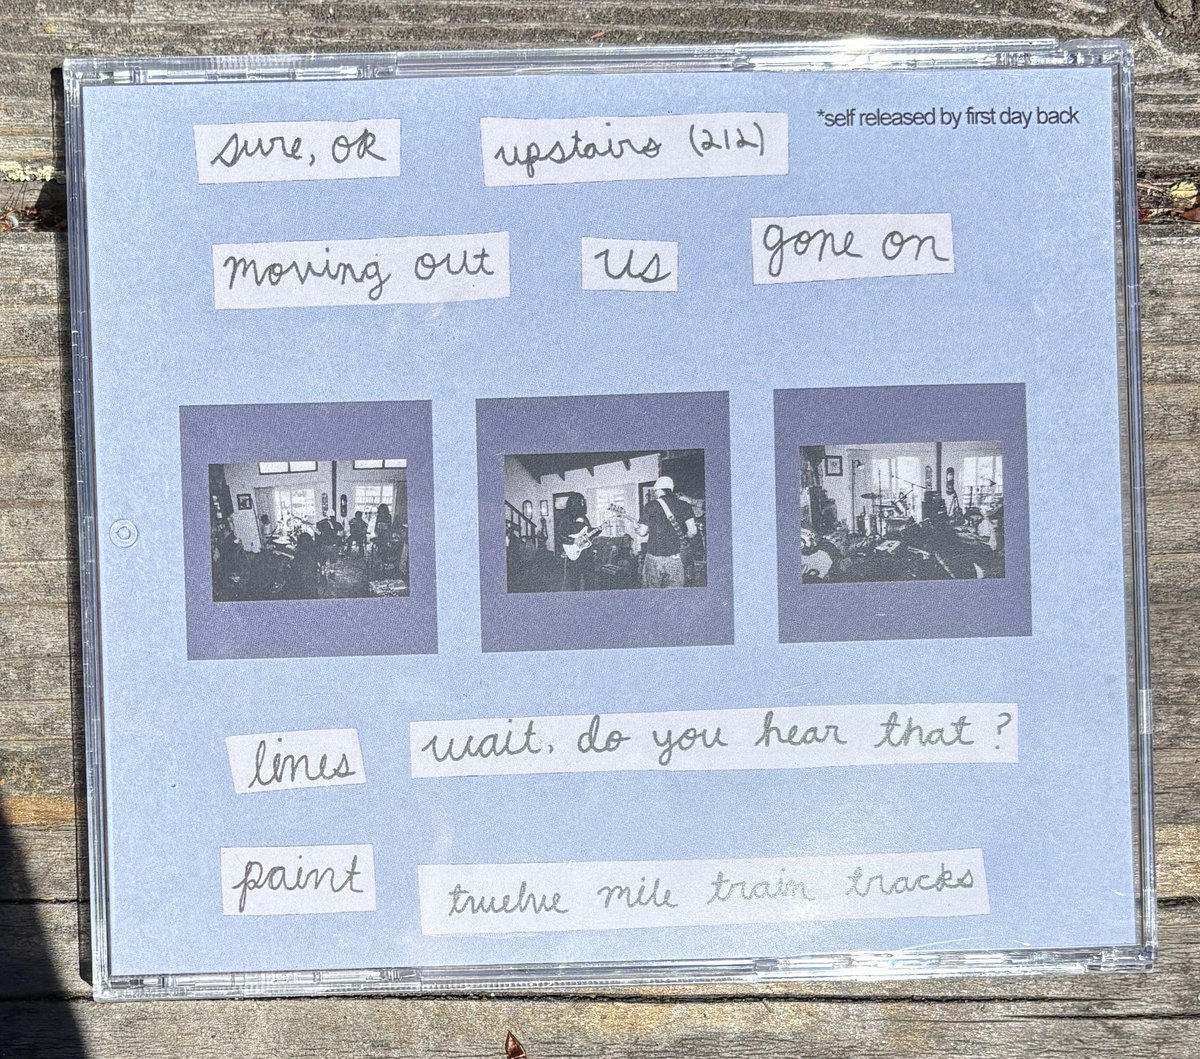 *self released by first day back
sure, ok
upstairs (212)
moving out
us
gone on
lines
wait, do you hear that?
paint
twelve mile train tracks